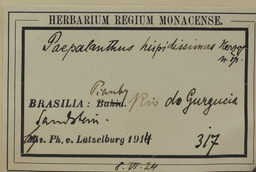 HERBARIUM REGIUM MONACENSE.
Paepalanthus hispidissimus Herzog
n. sp.
Piauhy
BRASILIA: Bahia. Rio do Gurgueia
Sandstein.
Ph. v. Lützelburg 1914 317
8. VI. 24